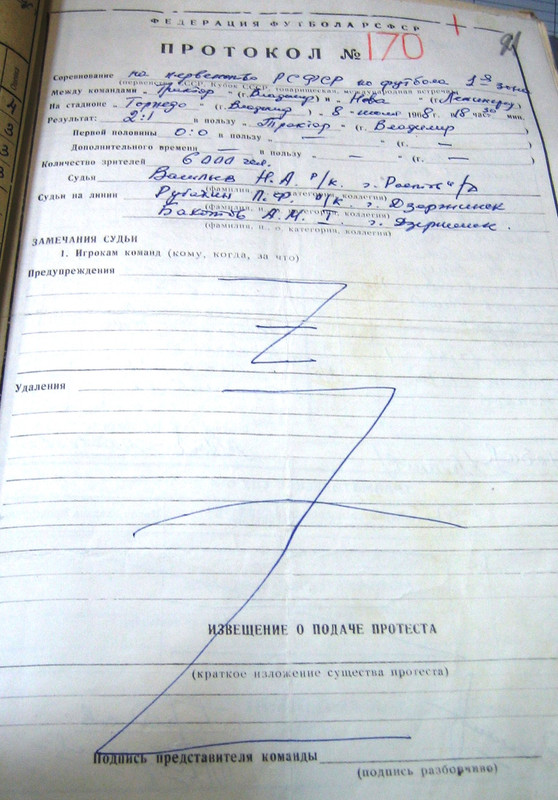 ФЕДЕРАЦИЯ ФУТБОЛА РСФСР
ПРОТОКОЛ № 170
Соревнование на первенство РСФСР по футболу 1я зона
(первенство СССР, Кубок СССР, товарищеская, международная встреча)
Между командами „Трактор" (г. Владимир) и „Нева" (Ленинград)
На стадионе „Торпедо" (г. Владимир) 8 июля 1968 г. 18 час 30 мин.
Результат: 2:1 в пользу „Трактор" (г. Владимир)
Первой половины 0:0 в пользу „ — " (г. — )
Дополнительного времени — в пользу „ — " (г. — )
Количество зрителей 6000 чел.
Судьи Васильев Н.А. р/к. г. Ростов н/Д
(фамилия, и., о. категория, коллегия)
Судьи на линии П.Ф. р/к. г. Дзержинск
(фамилия, и., о. категория, коллегия)
А.М. I г. Дзержинск.
(фамилия, и., о. категория, коллегия)
ЗАМЕЧАНИЯ СУДЬИ
1. Игрокам команд (кому, когда, за что)
Предупреждения
Удаления
ИЗВЕЩЕНИЕ О ПОДАЧЕ ПРОТЕСТА
(краткое изложение существа протеста)
Подпись представителя команды
(подпись разборчиво)